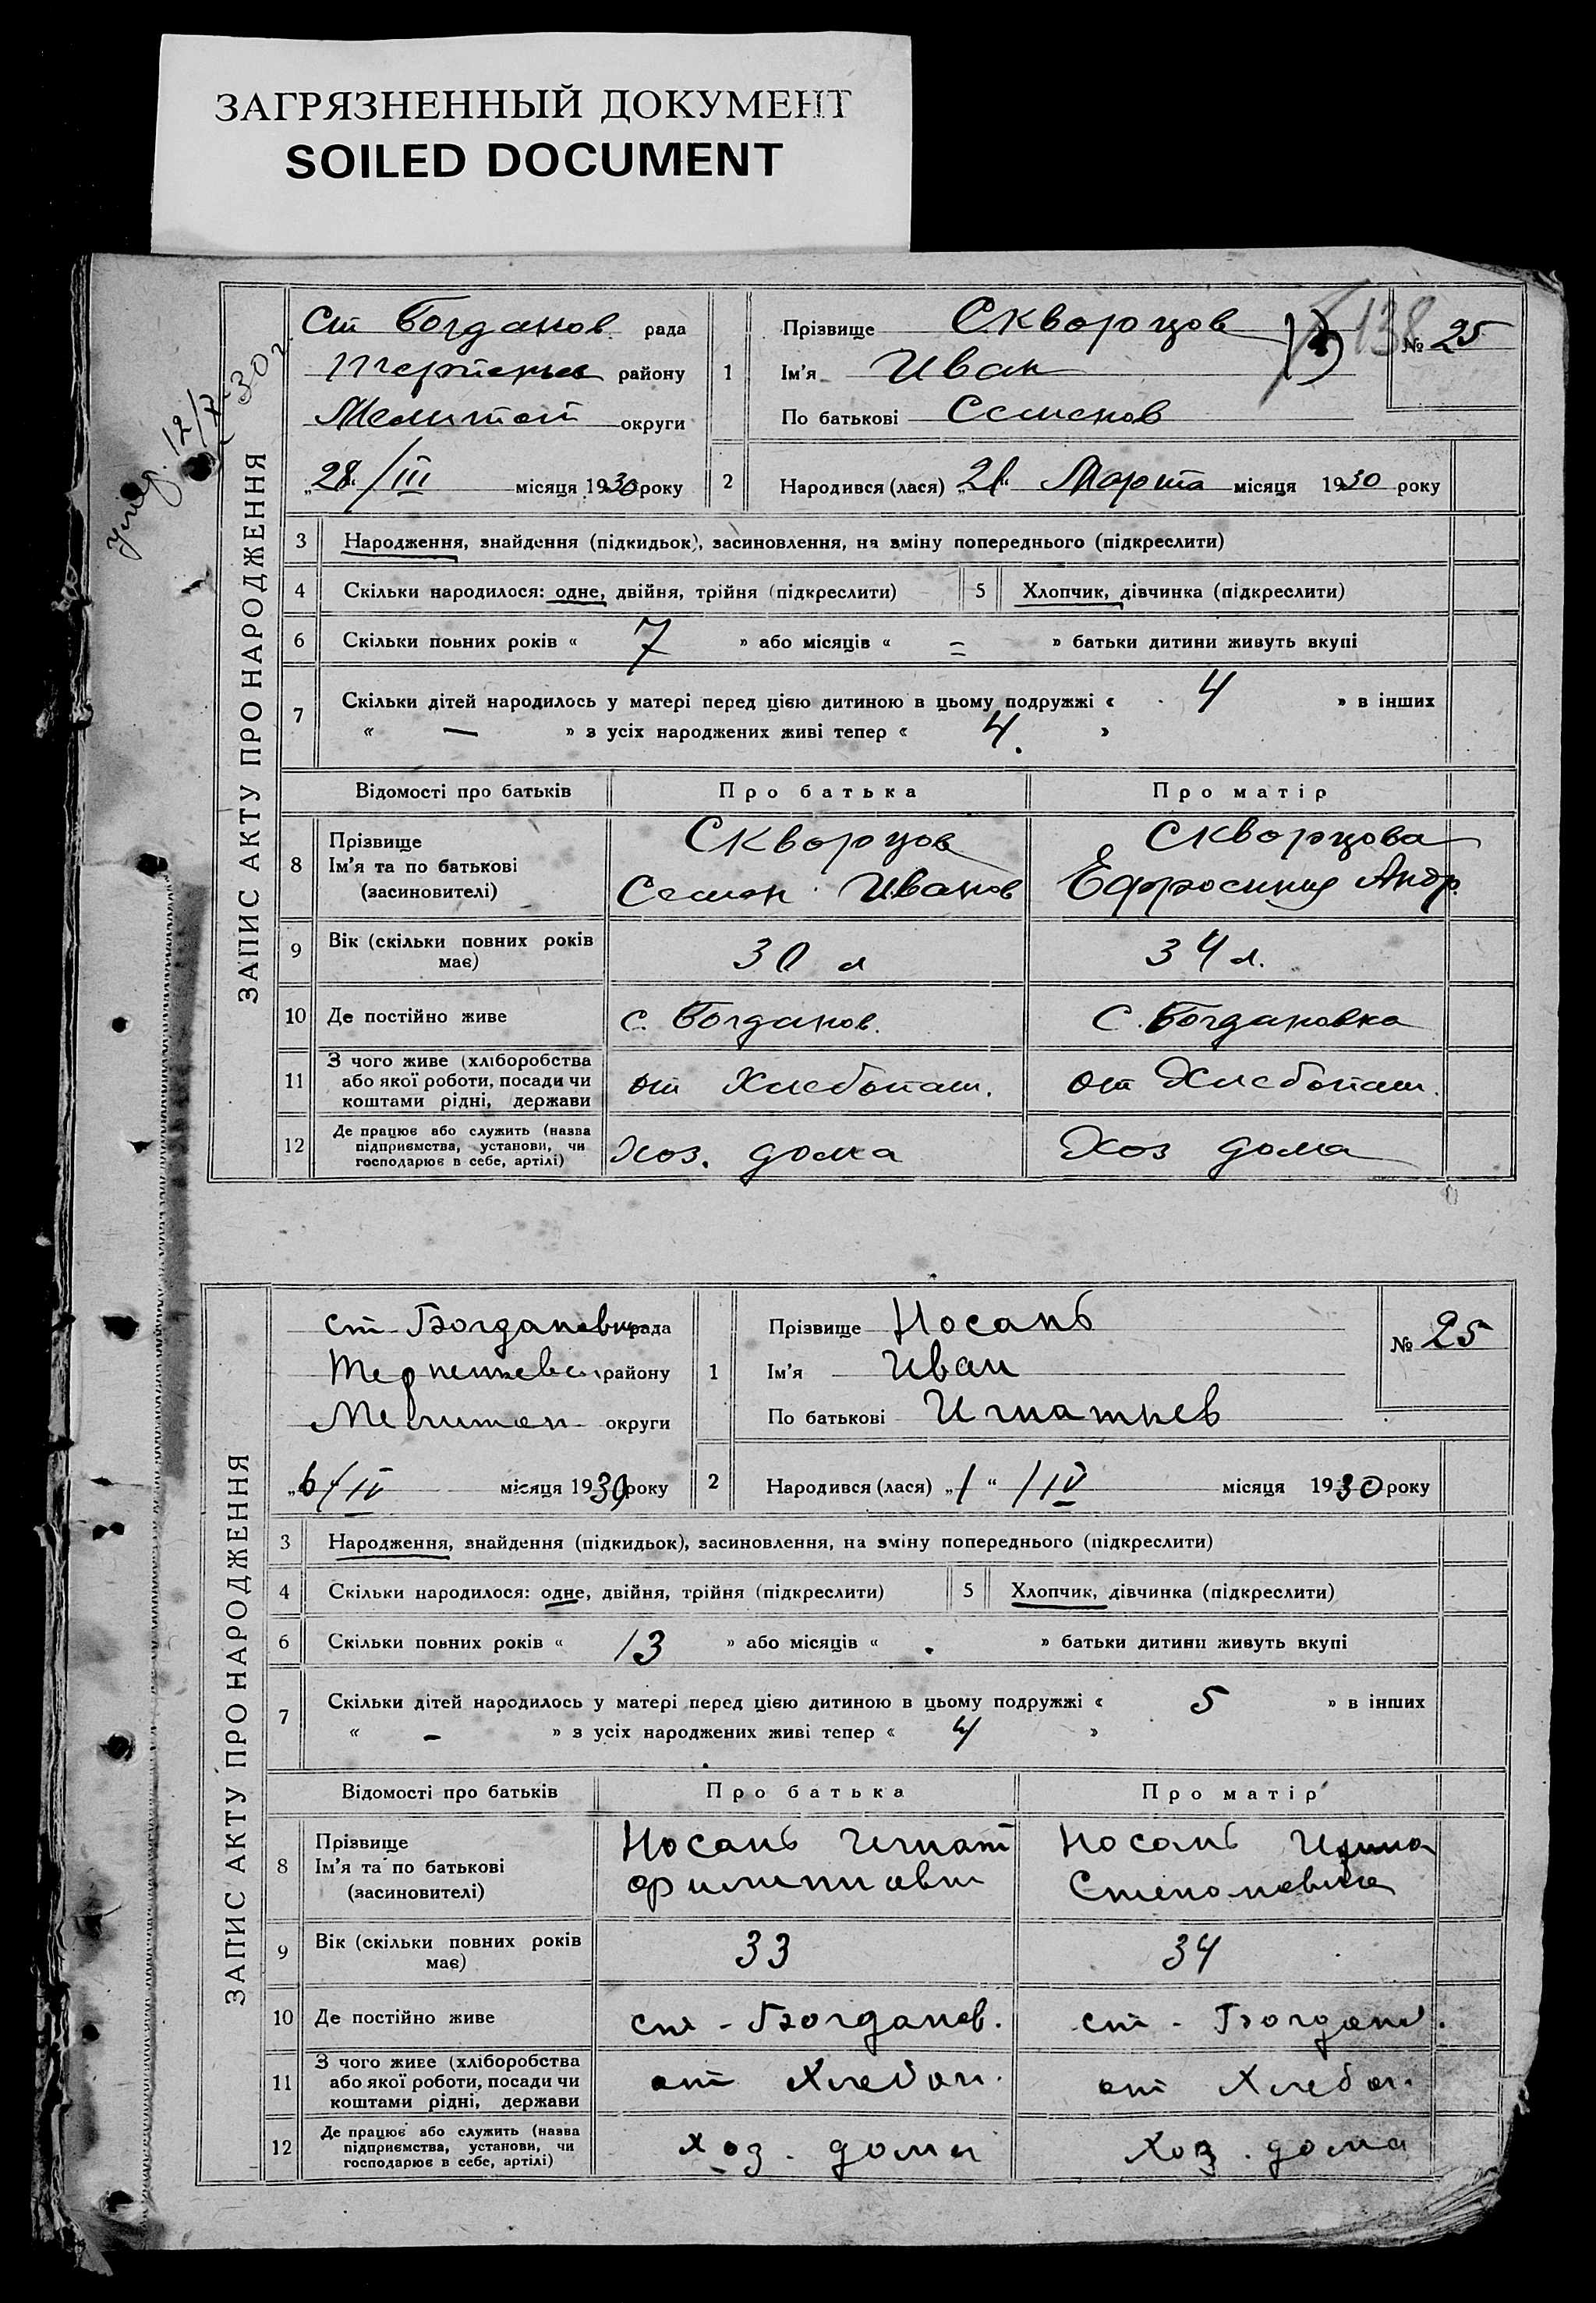 ЗАГРЯЗНЕННЫЙ ДОКУМЕНТ
SOILED DOCUMENT
12/X 30 г.
ЗАПИС АКТУ ПРО НАРОДЖЕННЯ
Ст Богданов рада
району
Мелитоп округи
„28“/III місяця 1930 року
1 Прізвище Скворцов
Ім'я Иван
По батькові Семенов
138
№ 25
2 Народився (лася) „21“ Марта місяця 1930 року
3 Народження, знайдення (підкидьок), засиновлення, на зміну попереднього (підкреслити)
4 Скільки народилося: одне, двійня, трійня (підкреслити) 5 Хлопчик, дівчинка (підкреслити)
6 Скільки повних років « 7 » або місяців « = » батьки дитини живуть вкупі
7 Скільки дітей народилось у матері перед цією дитиною в цьому подружжі « 4 » в інших
« — » з усіх народжених живі тепер « 4. »
Відомості про батьків Про батька Про матір
8 Прізвище Ім'я та по батькові (засиновителі)
Скворцов
Семен Иванов
Скворцова
Ефросиния Андр.
9 Вік (скільки повних років має) 30 л 34 л.
10 Де постійно живе с. Богданов. С. Богдановка
11 З чого живе (хліборобства
або якої роботи, посади чи
коштами рідні, держави
от Хлебопаш. от Хлебопаш.
12 Де працює або служить (назва
підприємства, установи, чи
господарює в себе, артілі)
Хоз. дома Хоз дома
ЗАПИС АКТУ ПРО НАРОДЖЕННЯ
ст-Богдановки рада
району
Мелитоп округи
„6“/IV місяця 1930 року
1 Прізвище Носань
Ім'я Иван
По батькові Игнатьев
№ 25
2 Народився (лася) „1“ /IV місяця 1930 року
3 Народження, знайдення (підкидьок), засиновлення, на зміну попереднього (підкреслити)
4 Скільки народилося: одне, двійня, трійня (підкреслити) 5 Хлопчик, дівчинка (підкреслити)
6 Скільки повних років « 13 » або місяців « . » батьки дитини живуть вкупі
7 Скільки дітей народилось у матері перед цією дитиною в цьому подружжі « 5 » в інших
« - » з усіх народжених живі тепер « 4 »
Відомості про батьків Про батька Про матір
8 Прізвище Ім'я та по батькові (засиновителі)
Носань Игнат
Носань Ирина
9 Вік (скільки повних років має) 33 34
10 Де постійно живе ст - Богданов. ст - Богданов.
11 З чого живе (хліборобства
або якої роботи, посади чи
коштами рідні, держави
от Хлебоп. от Хлебоп.
12 Де працює або служить (назва
підприємства, установи, чи
господарює в себе, артілі)
хоз. дома хоз. дома